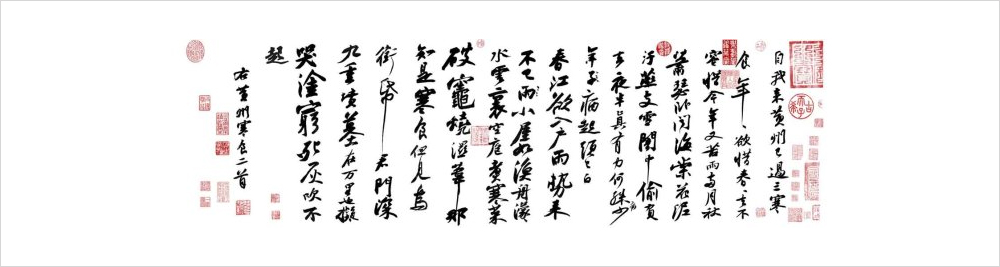 自我来黃州已過三寒
食年〻欲惜春〻去不
容惜今年又苦雨兩月秋
蕭瑟臥聞海棠花泥
汙燕支雪闇中偷負
去夜半真有力何殊少
年子病起須已白
春江欲入戶雨勢来
不已雨小屋如漁舟濛〻
水雲裏空庖煮寒菜
破竈燒濕葦那
知是寒食但見烏
銜帋君門深
九重墳墓在万里也擬
哭塗窮死灰吹不
起
右黃州寒食二首